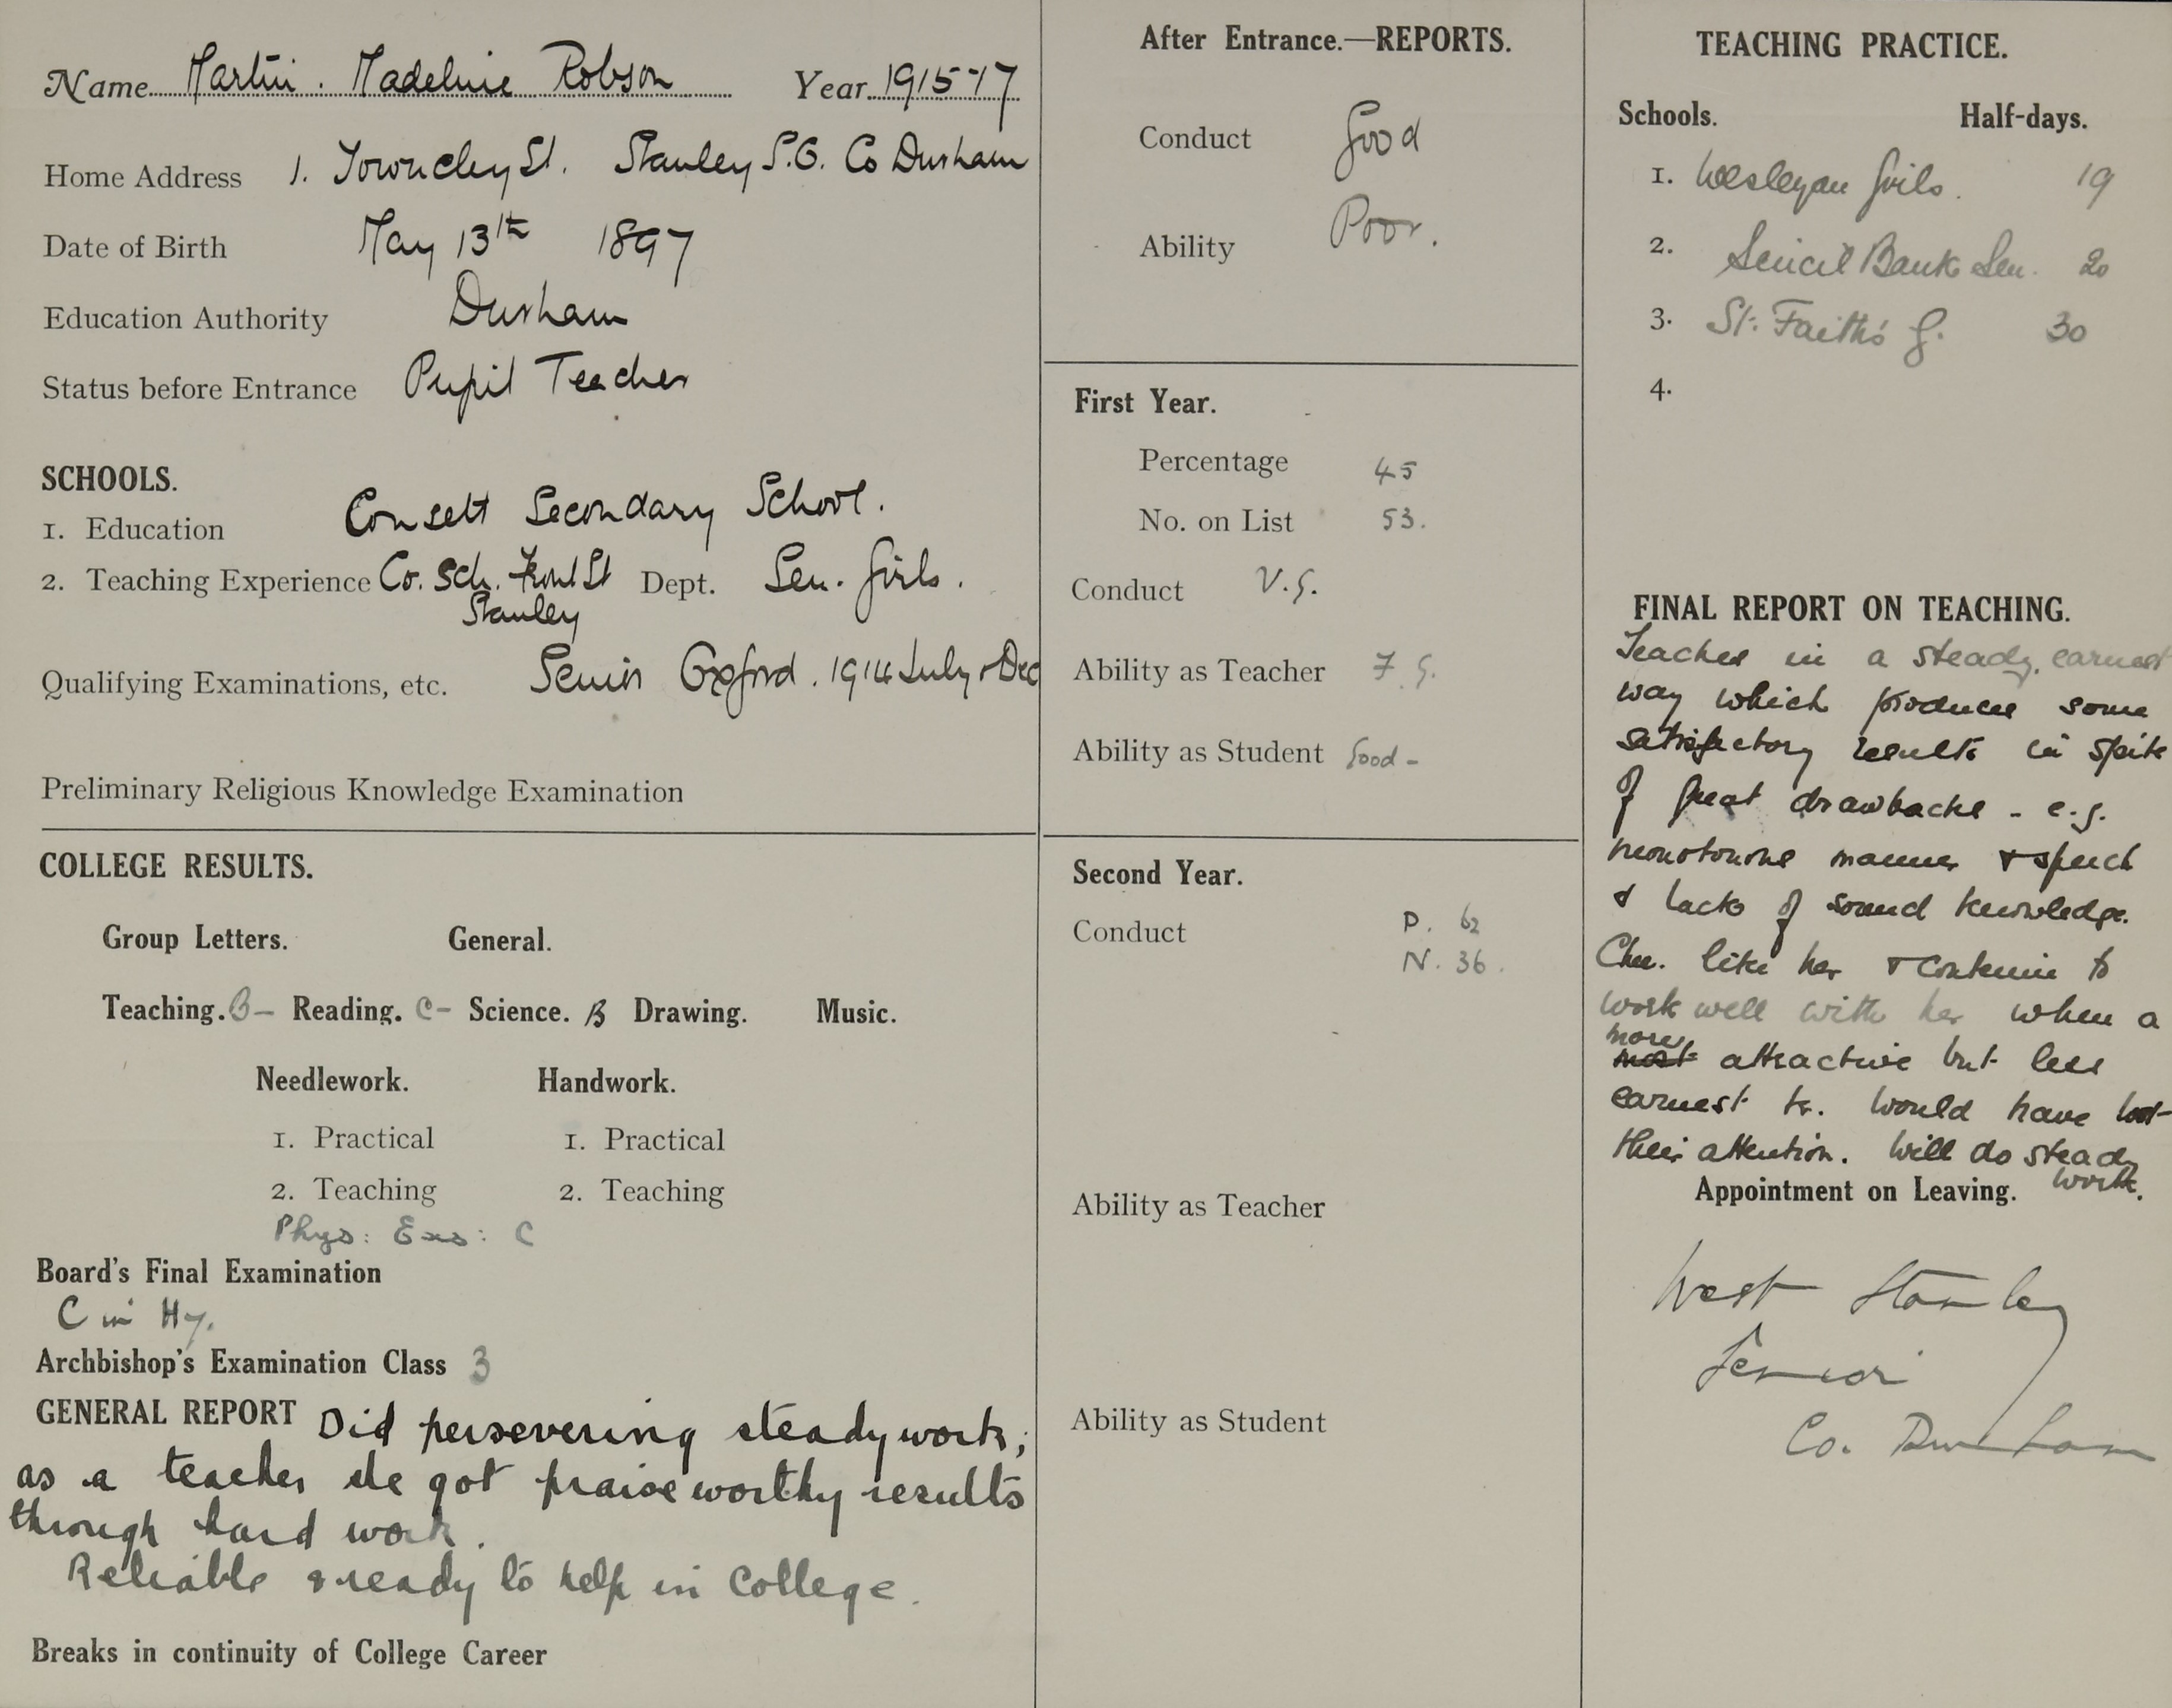 Name Martin. Madeline Robson Year 1915-17
Home Address 1. Towneley St. Stanley S.O. Co Durham
Date of Birth May 13th 1897
Education Authority Durham
Status before Entrance Pupil Teacher
SCHOOLS.
1. Education Consett Secondary School.
2. Teaching Experience Co. Sch. Front St Dept. Sen. Girls.
Stanley
Qualifying Examinations, etc. Senior Oxford. 1914 July & Dec
Preliminary Religious Knowledge Examination
COLLEGE RESULTS.
Group Letters. General.
Teaching. B- Reading. C- Science. B Drawing. Music.
Needlework. Handwork.
1. Practical 1. Practical
2. Teaching 2. Teaching
Phys: Exs: C
Board's Final Examination
C in Hy.
Archbishop's Examination Class 3
GENERAL REPORT Did persevering steady work;
as a teacher she got praiseworthy results
through hard work.
Reliable & ready to help in College.
Breaks in continuity of College Career
After Entrance.—REPORTS.
Conduct Good
Ability Poor.
First Year.
Percentage 45
No. on List 53.
Conduct V.G.
Ability as Teacher F.G.
Ability as Student Good -
Second Year.
Conduct P. 62
N. 36.
Ability as Teacher
Ability as Student
TEACHING PRACTICE.
Schools. Half-days.
1. Wesleyan Girls. 19
2. Sincil Bank Sen. 20
3. St. Faith's G. 30
4.
FINAL REPORT ON TEACHING.
Teaches in a steady, earnest
way which produces some
satisfactory results in spite
of great drawbacks - e.g.
monotonous manner & speech
& lack of sound knowledge.
Chn. like her & continue to
work well with her when a
more
most attractive but less
earnest tr. would have lost
their attention. Will do steady
work.
Appointment on Leaving.
West Stanley
Senior
Co. Durham